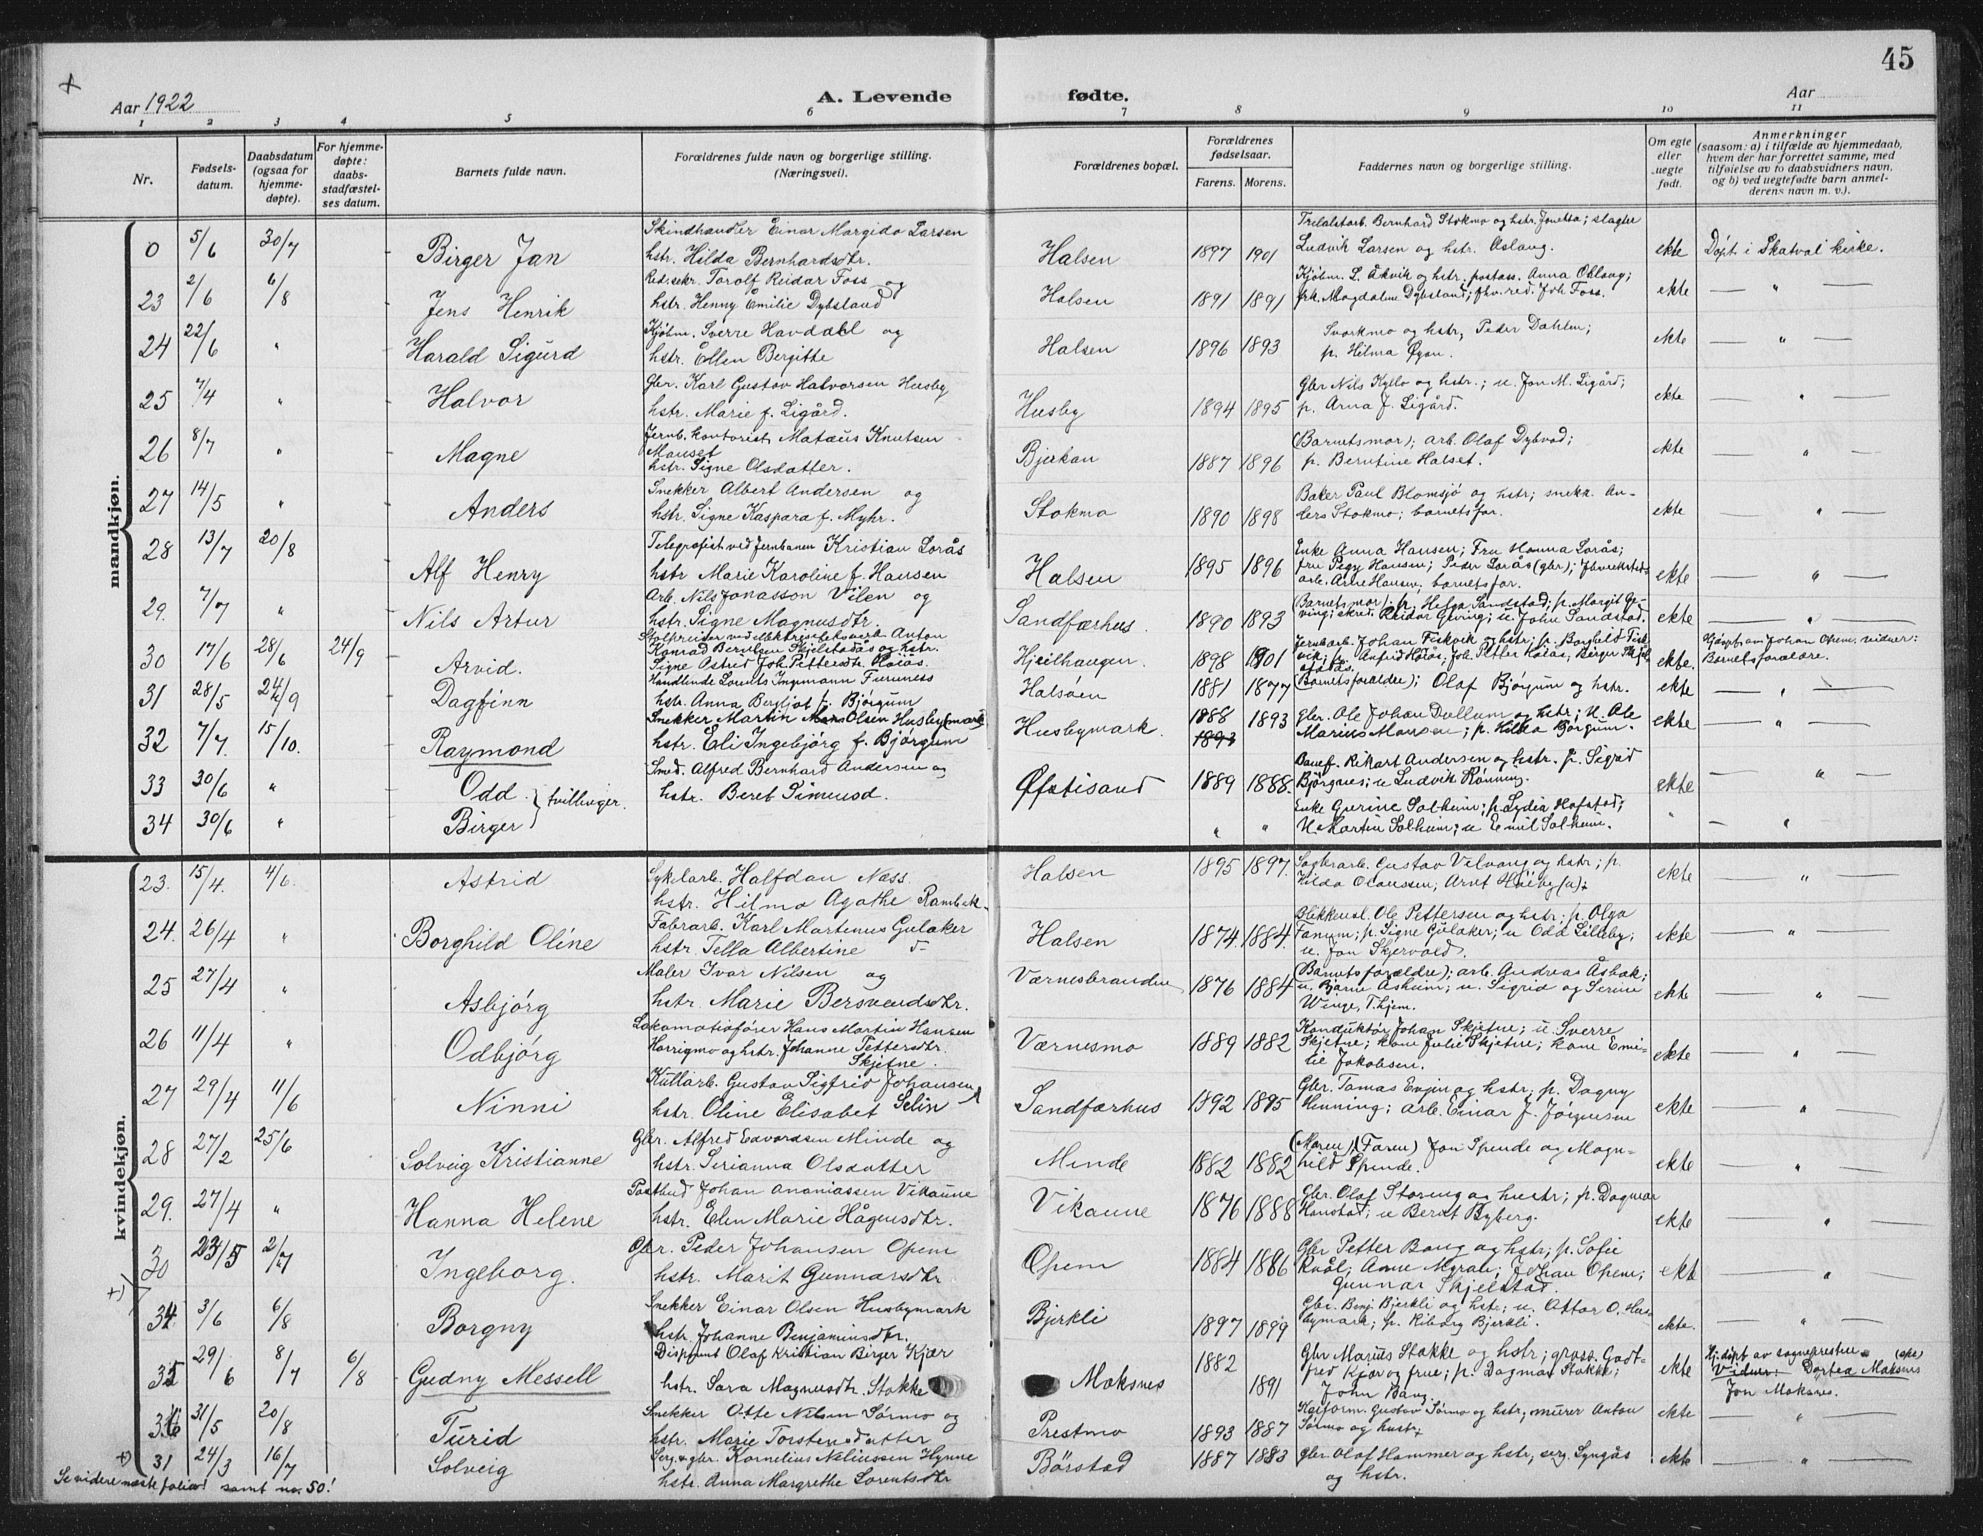 45
Aar 1922
A. Levende fødte.
Aar
1 2 3 4 5 6 7 8 9 10 11
Nr.
Fødsels-
datum.
Daabsdatum
(ogsaa for
hjemme-
døpte).
For hjemme-
døpte:
daabs-
stadfæstel-
ses datum.
Barnets fulde navn.
Forældrenes fulde navn og borgerlige stilling.
(Næringsvei).
Forældrenes bopæl.
Forældrenes
fødselsaar.
Farens. Morens.
Faddernes navn og borgerlige stilling.
Om egte
eller
uegte
født.
Anmerkninger
(saasom: a) i tilfælde av hjemmedaab,
hvem der har forrettet samme, med
tilføielse av to daabsvidners navn,
og b) ved uegtefødte barn anmel-
derens navn m. v.).
mandkjøn.
0 5/6 30/7 Birger Jan
Skindhandler Einar Margido Larsen
hstr. Hilda Bernhardsdtr.
Halsen 1897 1901
Bernhard Stokmo og hstr. Jonetta; slagter
Ludvik Larsen og hstr. Aslaug.
ekte Døpt i Skatval kirke.
23 2/6 6/8 Jens Henrik
Red.sekr. Torolf Reidar Foss og
hstr. Henny Emilie Dybsland
Halsen 1891 1891
Kjøbm. L. Åkvik og hstr, postass. Anna Oklaug;
frk. Magdalene Dybsland; fhv. red. Joh. Foss.
ekte — " —
24 22/6 " Harald Sigurd
Kjøbm. Sverre Havdahl og
hstr. Ellen Bergitte
Halsen 1896 1893
Svorkmo og hstr, Peder Dahlen;
p. Hilma Øyan.
ekte — " —
25 7/4 " Halvor
Gbr. Karl Gustav Halvorsen Husby
hstr. Marie f. Ligård.
Husby 1894 1895
Gbr Nils Kyllo og hstr.; u. Jon M. Ligård;
p. Arna J. Ligård.
ekte — " —
26 8/7 " Magne
Jernb. kontorist Mataus Knutsen
Mauset
hstr. Signe Olsdatter.
Bjerkan 1887 1896
(Barnets mor); arb. Olaf Dybvad;
p. Berntine Halset.
ekte — " —
27 14/5 " Anders
Snekker Albert Andersen og
hstr. Signe Kaspara f. Myhr.
Stokmo 1890 1898
Baker Paul Blomsjø og hstr; snekk. An-
ders Stokmo; barnets far.
ekte — " —
28 13/7 20/8 Alf Henry
Telegrafist ved Jernbanen Kristian Lorås
hstr Marie Karoline f. Hansen
Halsen 1895 1896
Enke Anna Hansen; Fru Hanna Lorås;
fru Pegy Hansen; Peder Lorås (gbr);
arb. Arne Hansen; barnets far.
ekte — " —
29. 7/7 " Nils Artur
Arb. Nils Jonasson Vilen og
hstr. Signe Magnusdtr.
Sandfærhus. 1890 1893
(Barnets mor); p. Helga Sandstad; p. Margit Ge-
ving; skred. Reidar Geving; u. John Sandstad.
ekte "
30 17/6 28/6 24/9 Arvid.
Stolpreiser ved elektrisitetsverk Anton
Konrad Berntsen Skjelstadås og hstr.
Signe Astrid Joh. Pettersdtr. Hoiås.
Hjeilhaugen. 1898 1901
Jernbarb. Johan Fiskvik og hstr; p. Borghild Fisk-
vik; Joh. Petter Hoiås, Birger
ekte. Hj.døpt av Johan Opem. vidner:
Barnets forældre.
31 28/5 24/9 Dagfinn
Handlende Lorents Ingemann Furunes
hstr. Anna Bergljot f. Bjørgum
Halsøen 1881 1877
(Barnets forældre); Olaf Bjørgum og hstr.
ekte — " —
32 7/7. 15/10. Raymond
Snekker Martin Olsen Husby(mark)
hstr. Eli Ingebjørg f. Bjørgum
Husbymark. 1888 1893 1893
Gbr. Ole Johan Dullum og hstr; u. Ole
Marius Hansen; p. Hilda Bjørgum.
ekte — " —
33 30/6 " Odd } tvillinger.
Smed. Alfred Bernhard Andersen og
hstr. Beret Simensd.
Øfstisand 1889 1888.
Banef. Rikart Andersen og hstr. p. Sigrid
Bjørgnes; u. Ludvik Rønning.
ekte — " —
34 30/6 " Birger
" "
Enke Gurine Solheim; p. Lydia Hofstad;
U. Martin Solheim; u. Emil Solheim.
" — "
kvindekjøn.
23. 15/4. 4/6. Astrid
Sykelarb. Halfdan Næss.
hstr. Hilma Agathe Rambek.
Halsen 1895 1897.
Sagbrarb. Gustav Velvang og hstr; p.
Hilda Olaussen; Arnt Høiby (u).
ekte — " —
24. 26/4 " Borghild Oline
Fabrarb. Karl Martenus Gulaker
hstr. Tella Albertine
Halsen 1874. 1884.
Blikkensl. Ole Pettersen og hstr; p. Olga
Fanum; p. Signe Gulaker; u Odd Lilleby;
u. Jon Skjervold.
ekte — " —
25 27/4 " Asbjørg
Maler Ivar Nilsen og
hstr. Marie Bersvendsdtr.
Værnesbranden 1876 1884
(Barnets forældre); arb. Andreas Åsbak;
u. Bjarne Åsheim; u. Sigrid og Serine
Winge, T.hjem.
ekte — " —
26 11/4 " Odbjørg
Lokomotivfører Hans Martin Hansen
Horrigmo og hstr. Johanne Pettersdtr.
Skjetne.
Værnesmo 1889 1882
Konduktør Johan Skjetne; u. Sverre
Skjetne; kone Julie Skjetne; kone Emi-
lie Jakobsen.
ekte — " —
27 29/4 11/6 Ninni
Kullarb. Gustav Sigfrid Johansen
hstr. Oline Elisabet Selin
Sandfærhus 1892 1895
Gbr. Tamas Evjen og hstr; p. Dagny
Henning; arb. Einar J. Jørgensen
ekte — " —
28 27/2 25/6 Solveig Kristianne
Gbr. Alfred Edvardsen Minde og
hstr. Serianna Olsdatter
Minde 1882 1882
(Moren) (Faren) Jon Spende og Magn-
hild Spende.
ekte — " —
29. 27/4 " Hanna Helene
Postbud Johan Ananiassen Vikaune
hstr. Elen Marie Hågensdtr.
Vikaune 1876 1888
Gbr. Olaf Storeng og hustr; p. Dagmar
Hanstad; u Berat Byberg.
ekte — " —
30 23/5 2/7 Ingeborg.
Gbr. Peder Johansen Opem
hstr. Marit Gunnarsdtr
Opem 1884 1886
Gbr Petter Bang og hstr; p. Sofie
Kvål; Anne Moran; Johan Opem;
Gunnar Skjelstad.
ekt — " —
34 3/6 6/8 Borgny
Snekker Einar Olsen Husbymark
hstr. Johanne Benjaminsdtr.
Bjerkli 1897 1899
Gbr. Benj. Bjerkli og hstr; u. Ottar O. Hus-
bymark; p. Riborg Bjerkli.
ekte. — " —
35 29/6 8/7 6/8 Gudny Messell
Disponent Olaf Kristian Birger Kjær
hstr. Sara Magnusdtr. Stokke
Moksnes 1882 1891
Gbr Marius Stokke og hstr; gross. Godt-
fred Kjær og frue; p. Dagmar Stokke;
John Bang.
ekte Hj.døpt av sognepresten.
Vidner: Dortea Moksnes
Jon Moksnes.
36 31/5 20/8 Turid
Snekker Otte Nilsen Sørmo og
hstr. Marie Torstensdatter
Prestmo 1893 1887
Gustav Sørmo og hstr; murer Anton
Sørmo og hustr.
ekte — " —
31 24/3 16/7 Solveig
Serg. & gbr. Kornelius Neliussen Hynne
hstr. Anna Margrethe Lorentsdtr
Børstad 1887 1883
Gbr. Olaf Hammer og hstr, serg. Lyngås
og hstr.
ekte — " —
Se videre næste folio samt no. 50!